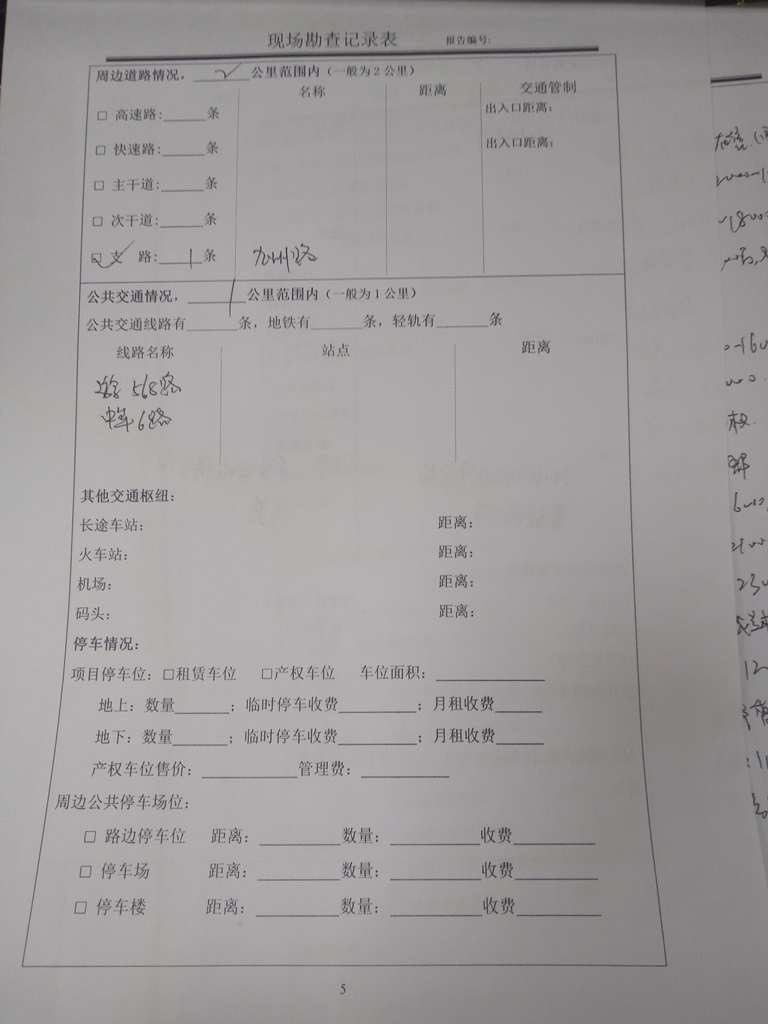 现场勘查记录表 报告编号:
周边道路情况，____公里范围内（一般为2公里）
名称 距离 交通管制
□ 高速路:____条 出入口距离：
□ 快速路:____条 出入口距离：
□ 主干道:____条
□ 次干道:____条
☑ 支 路:__1__条 九州路
公共交通情况，__1__公里范围内（一般为1公里）
公共交通线路有____条，地铁有____条，轻轨有____条
线路名称 站点 距离
568路
6路
其他交通枢纽：
长途车站： 距离：
火车站： 距离：
机场： 距离：
码头： 距离：
停车情况：
项目停车位：□租赁车位 □产权车位 车位面积：____
地上：数量____；临时停车收费____；月租收费____
地下：数量____；临时停车收费____；月租收费____
产权车位售价：____管理费：____
周边公共停车场位：
□ 路边停车位 距离：____数量：____收费____
□ 停车场 距离：____数量：____收费____
□ 停车楼 距离：____数量：____收费____
5